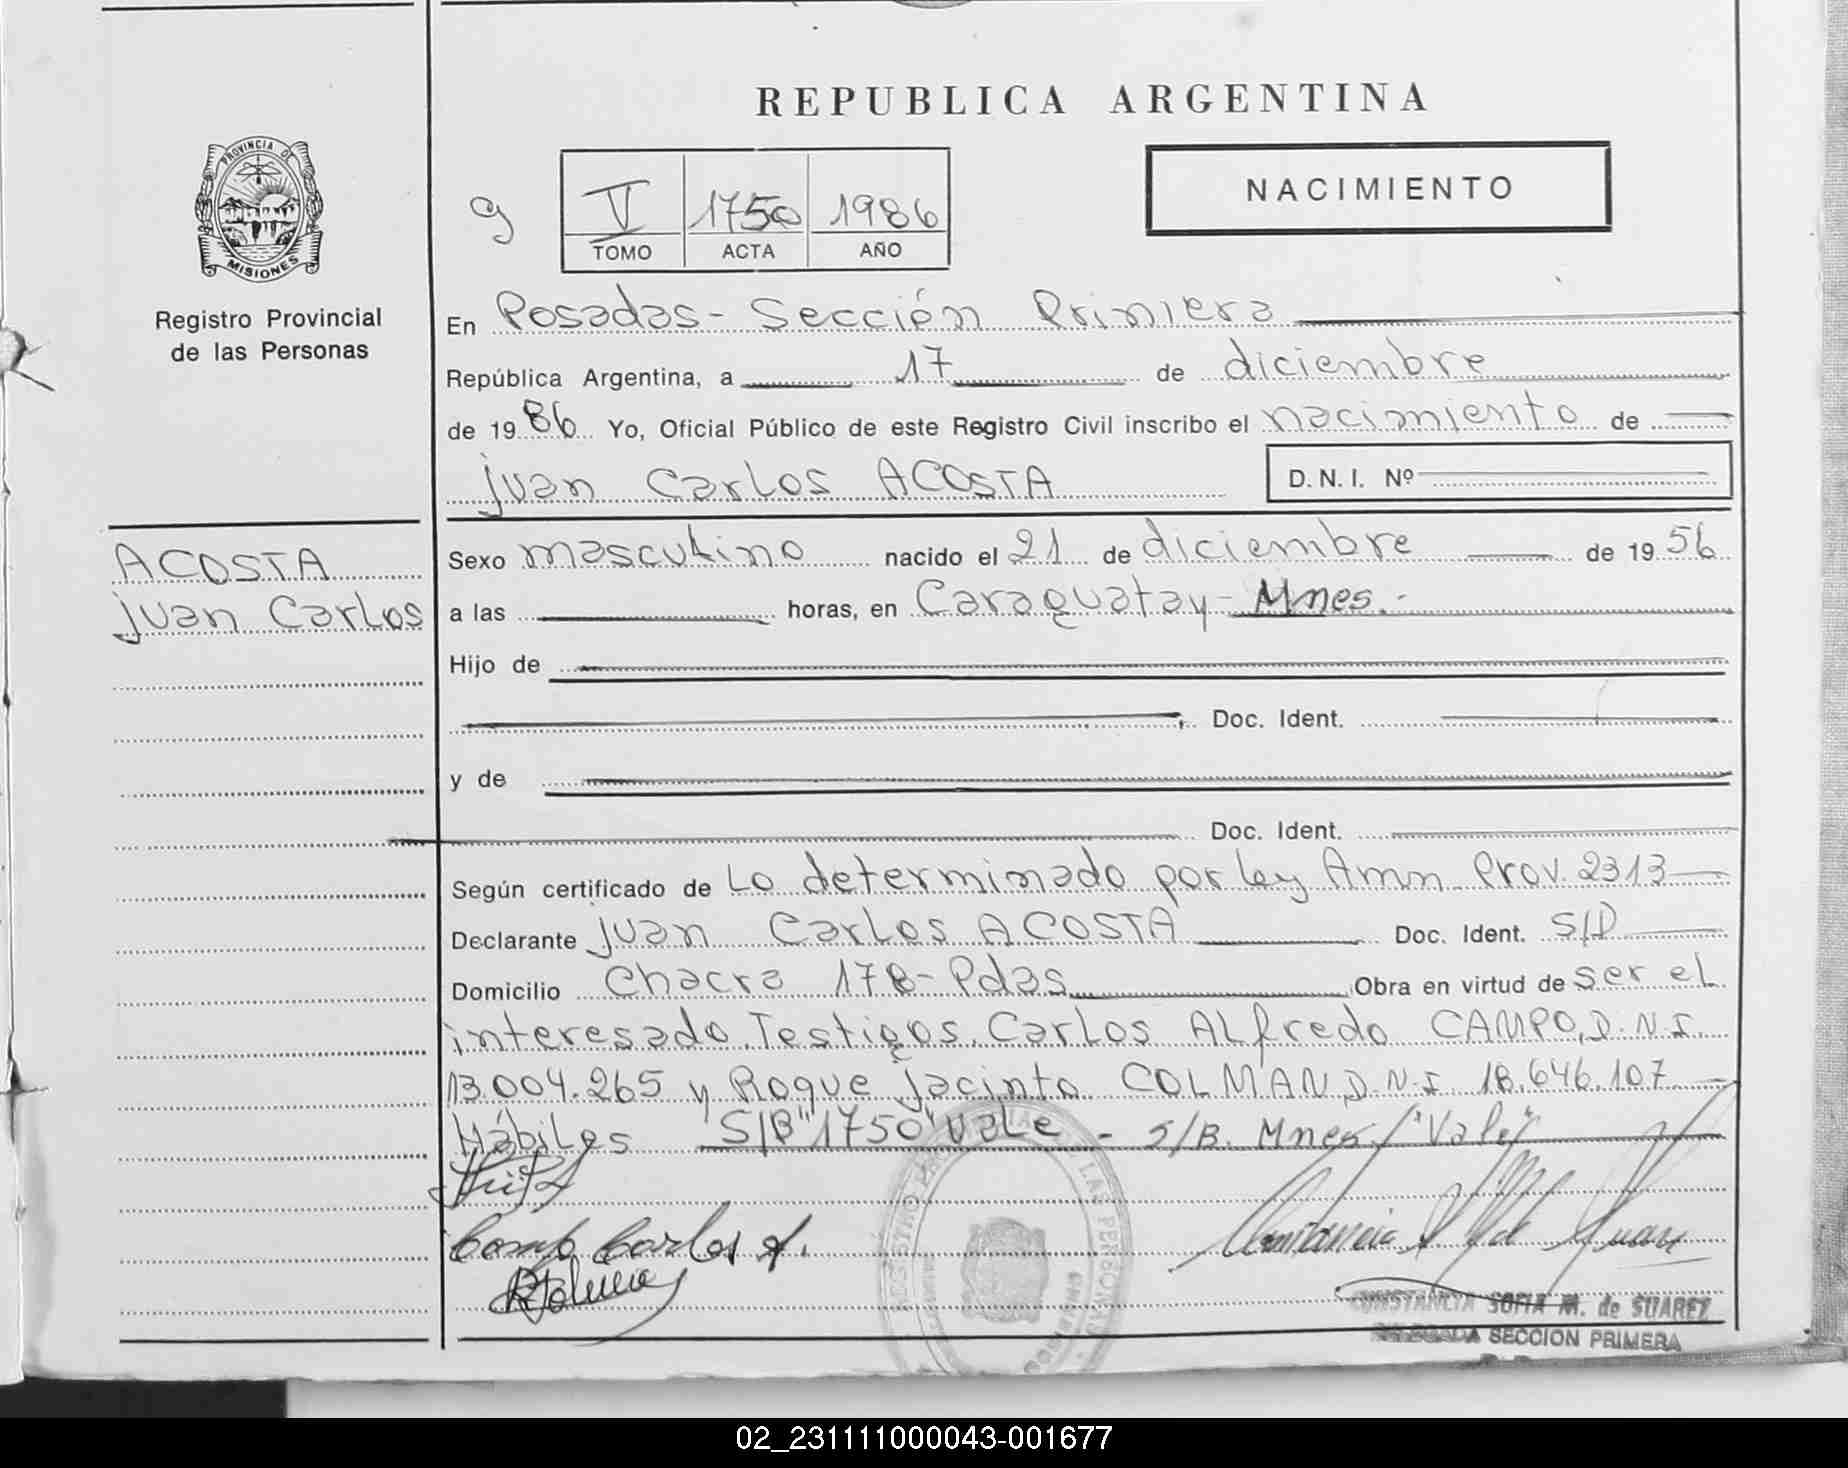 REPUBLICA ARGENTINA
PROVINCIA DE
MISIONES
Registro Provincial
de las Personas
NACIMIENTO
g
V 1750 1986
TOMO ACTA AÑO
En Posadas - Sección Primera
República Argentina, a 17 de diciembre
de 1986 Yo, Oficial Público de este Registro Civil inscribo el nacimiento de
Juan Carlos ACOSTA D.N.I. Nº
ACOSTA
Juan Carlos
Sexo masculino nacido el 21 de diciembre de 1956
a las horas, en Caraguatay - Mnes.-
Hijo de
Doc. Ident.
y de
Doc. Ident.
Según certificado de Lo determinado por ley Amn. Prov. 2313
Declarante Juan Carlos ACOSTA Doc. Ident. S/D
Domicilio Chacra 178 - Pdas Obra en virtud de ser el
interesado. Testigos. Carlos Alfredo CAMPO, D.N.I.
13.004.265 y Roque Jacinto COLMAN, D.N.I. 18.646.107
Hábiles S/B "1750" Vale - S/B. Mnes/ "Vale"
Campo Carlos A.
CONSTANCIA SOFIA M. de SUAREZ
DELEGADA SECCION PRIMERA
02_231111000043-001677